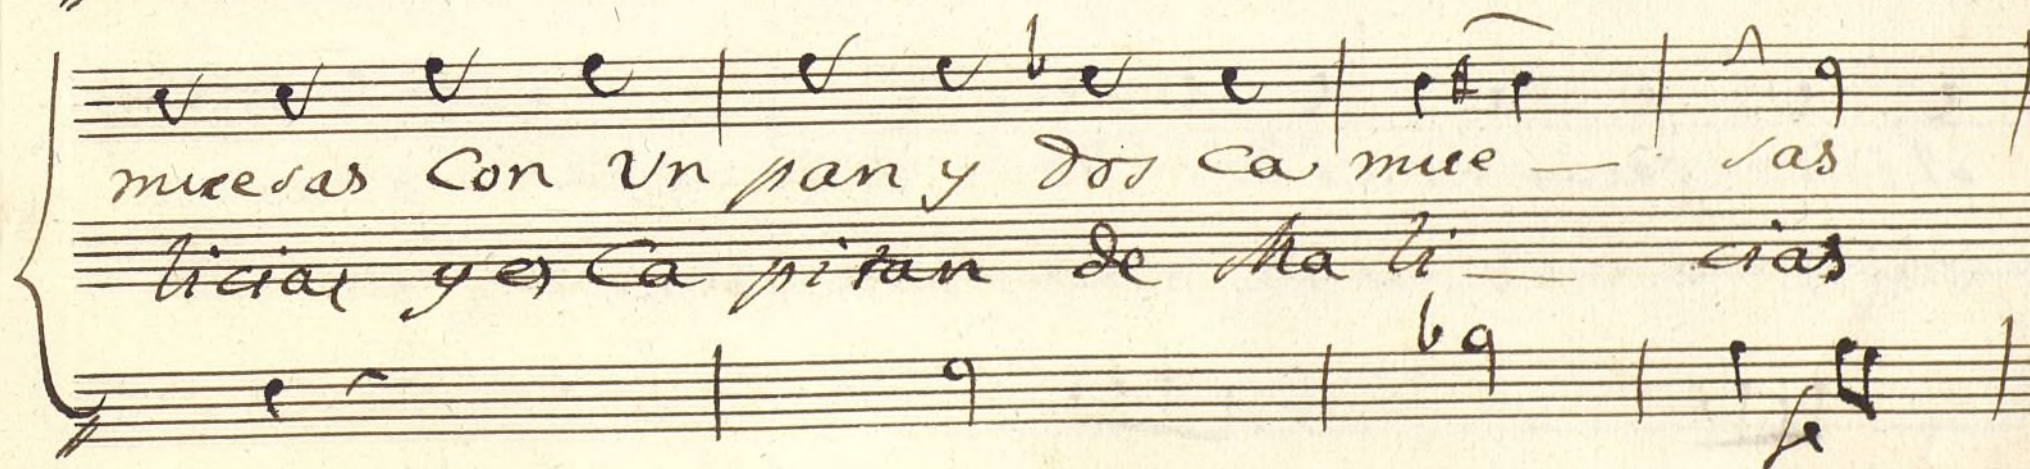 muesas Con Un pan y dos ca mue — sas
licias y es Ca pitan de Ma li — cias